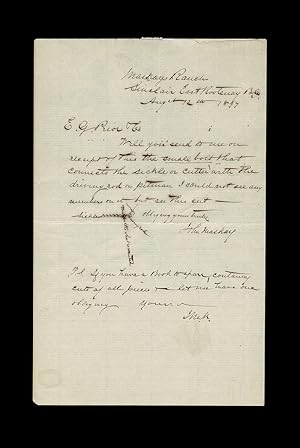 Mackay Ranch
Sinclair East Kootenay B.C.
Augt 12th 1897
E. G. Prior & Co
Will you send to me on
receipt of this the small bolt that
connects the sickle or cutter with the
driving rod or pitman I could not see any
numbers on it but see this cut —
obliging yours truly
John Mackay
P.S. If you have a Book to spare, containing
cuts of all pieces — let me have one
obliging Yours
J McK.